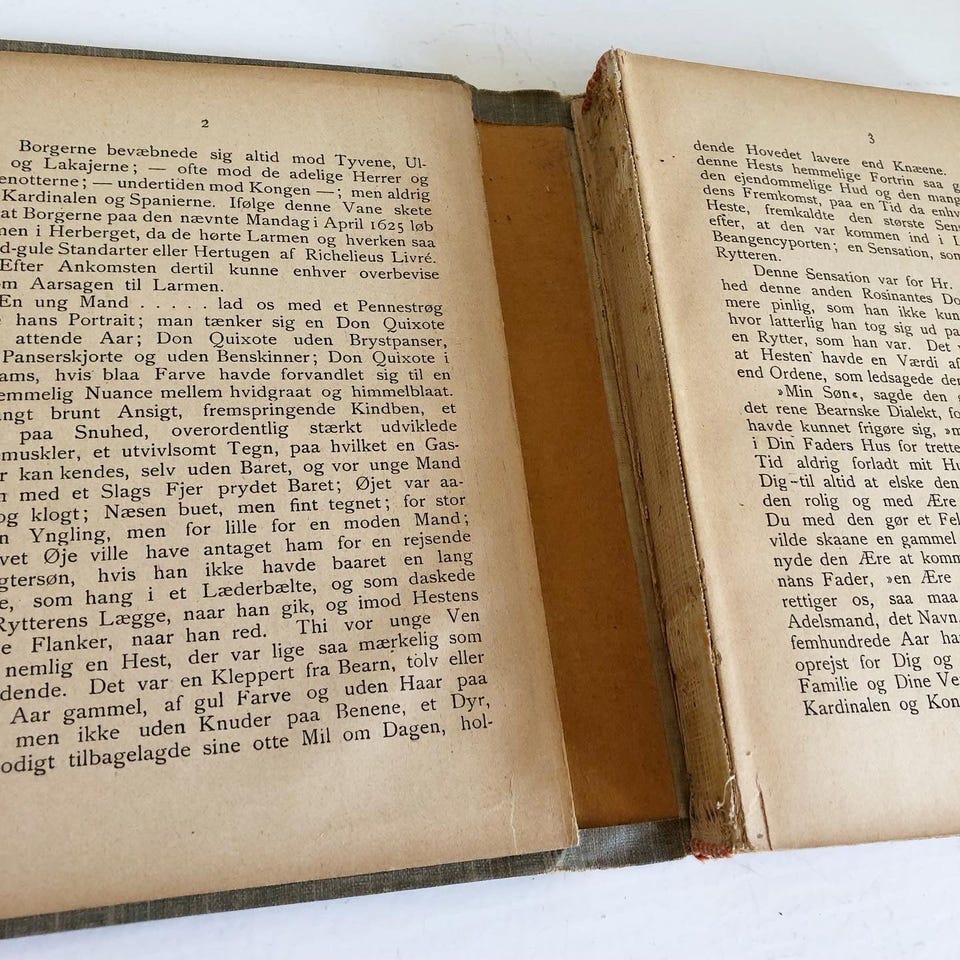 2
Borgerne bevæbnede sig altid mod Tyvene, Ul-
og Lakajerne; — ofte mod de adelige Herrer og
enotterne; — undertiden mod Kongen —; men aldrig
Kardinalen og Spanierne. Ifølge denne Vane skete
at Borgerne paa den nævnte Mandag i April 1625 løb
men i Herberget, da de hørte Larmen og hverken saa
d-gule Standarter eller Hertugen af Richelieus Livré.
Efter Ankomsten dertil kunne enhver overbevise
om Aarsagen til Larmen.
En ung Mand . . . . . lad os med et Pennestrøg
hans Portrait; man tænker sig en Don Quixote
attende Aar; Don Quixote uden Brystpanser,
Panserskjorte og uden Benskinner; Don Quixote i
ams, hvis blaa Farve havde forvandlet sig til en
emmelig Nuance mellem hvidgraat og himmelblaat.
ngt brunt Ansigt, fremspringende Kindben, et
paa Snuhed, overordentlig stærkt udviklede
muskler, et utvivlsomt Tegn, paa hvilket en Gas-
r kan kendes, selv uden Baret, og vor unge Mand
n med et Slags Fjer prydet Baret; Øjet var aa-
og klogt; Næsen buet, men fint tegnet; for stor
n Yngling, men for lille for en moden Mand;
vet Øje ville have antaget ham for en rejsende
gtersøn, hvis han ikke havde baaret en lang
e, som hang i et Læderbælte, og som daskede
Rytterens Lægge, naar han gik, og imod Hestens
e Flanker, naar han red. Thi vor unge Ven
nemlig en Hest, der var lige saa mærkelig som
dende. Det var en Kleppert fra Bearn, tolv eller
Aar gammel, af gul Farve og uden Haar paa
men ikke uden Knuder paa Benene, et Dyr,
odigt tilbagelagde sine otte Mil om Dagen, hol-
3
dende Hovedet lavere end Knæene.
denne Hests hemmelige Fortrin saa g
den ejendommelige Hud og den mang
dens Fremkomst, paa en Tid da enhv
Heste, fremkaldte den største Sens
efter, at den var kommen ind i
Beangencyporten; en Sensation, som
Rytteren.
Denne Sensation var for Hr.
hed denne anden Rosinantes Do
mere pinlig, som han ikke kun
hvor latterlig han tog sig ud pa
en Rytter, som han var. Det
at Hesten havde en Værdi af
end Ordene, som ledsagede de
»Min Søn«, sagde den
det rene Bearnske Dialekt, fo
havde kunnet frigøre sig, »
i Din Faders Hus for trette
Tid aldrig forladt mit Hu
Dig til altid at elske den
den rolig og med Ære
Du med den gør et Fel
vilde skaane en gammel
nyde den Ære at komm
nans Fader, »en Ære
rettiger os, saa maa
Adelsmand, det Navn
femhundrede Aar ha
oprejst for Dig og
Familie og Dine Ve
Kardinalen og Kon